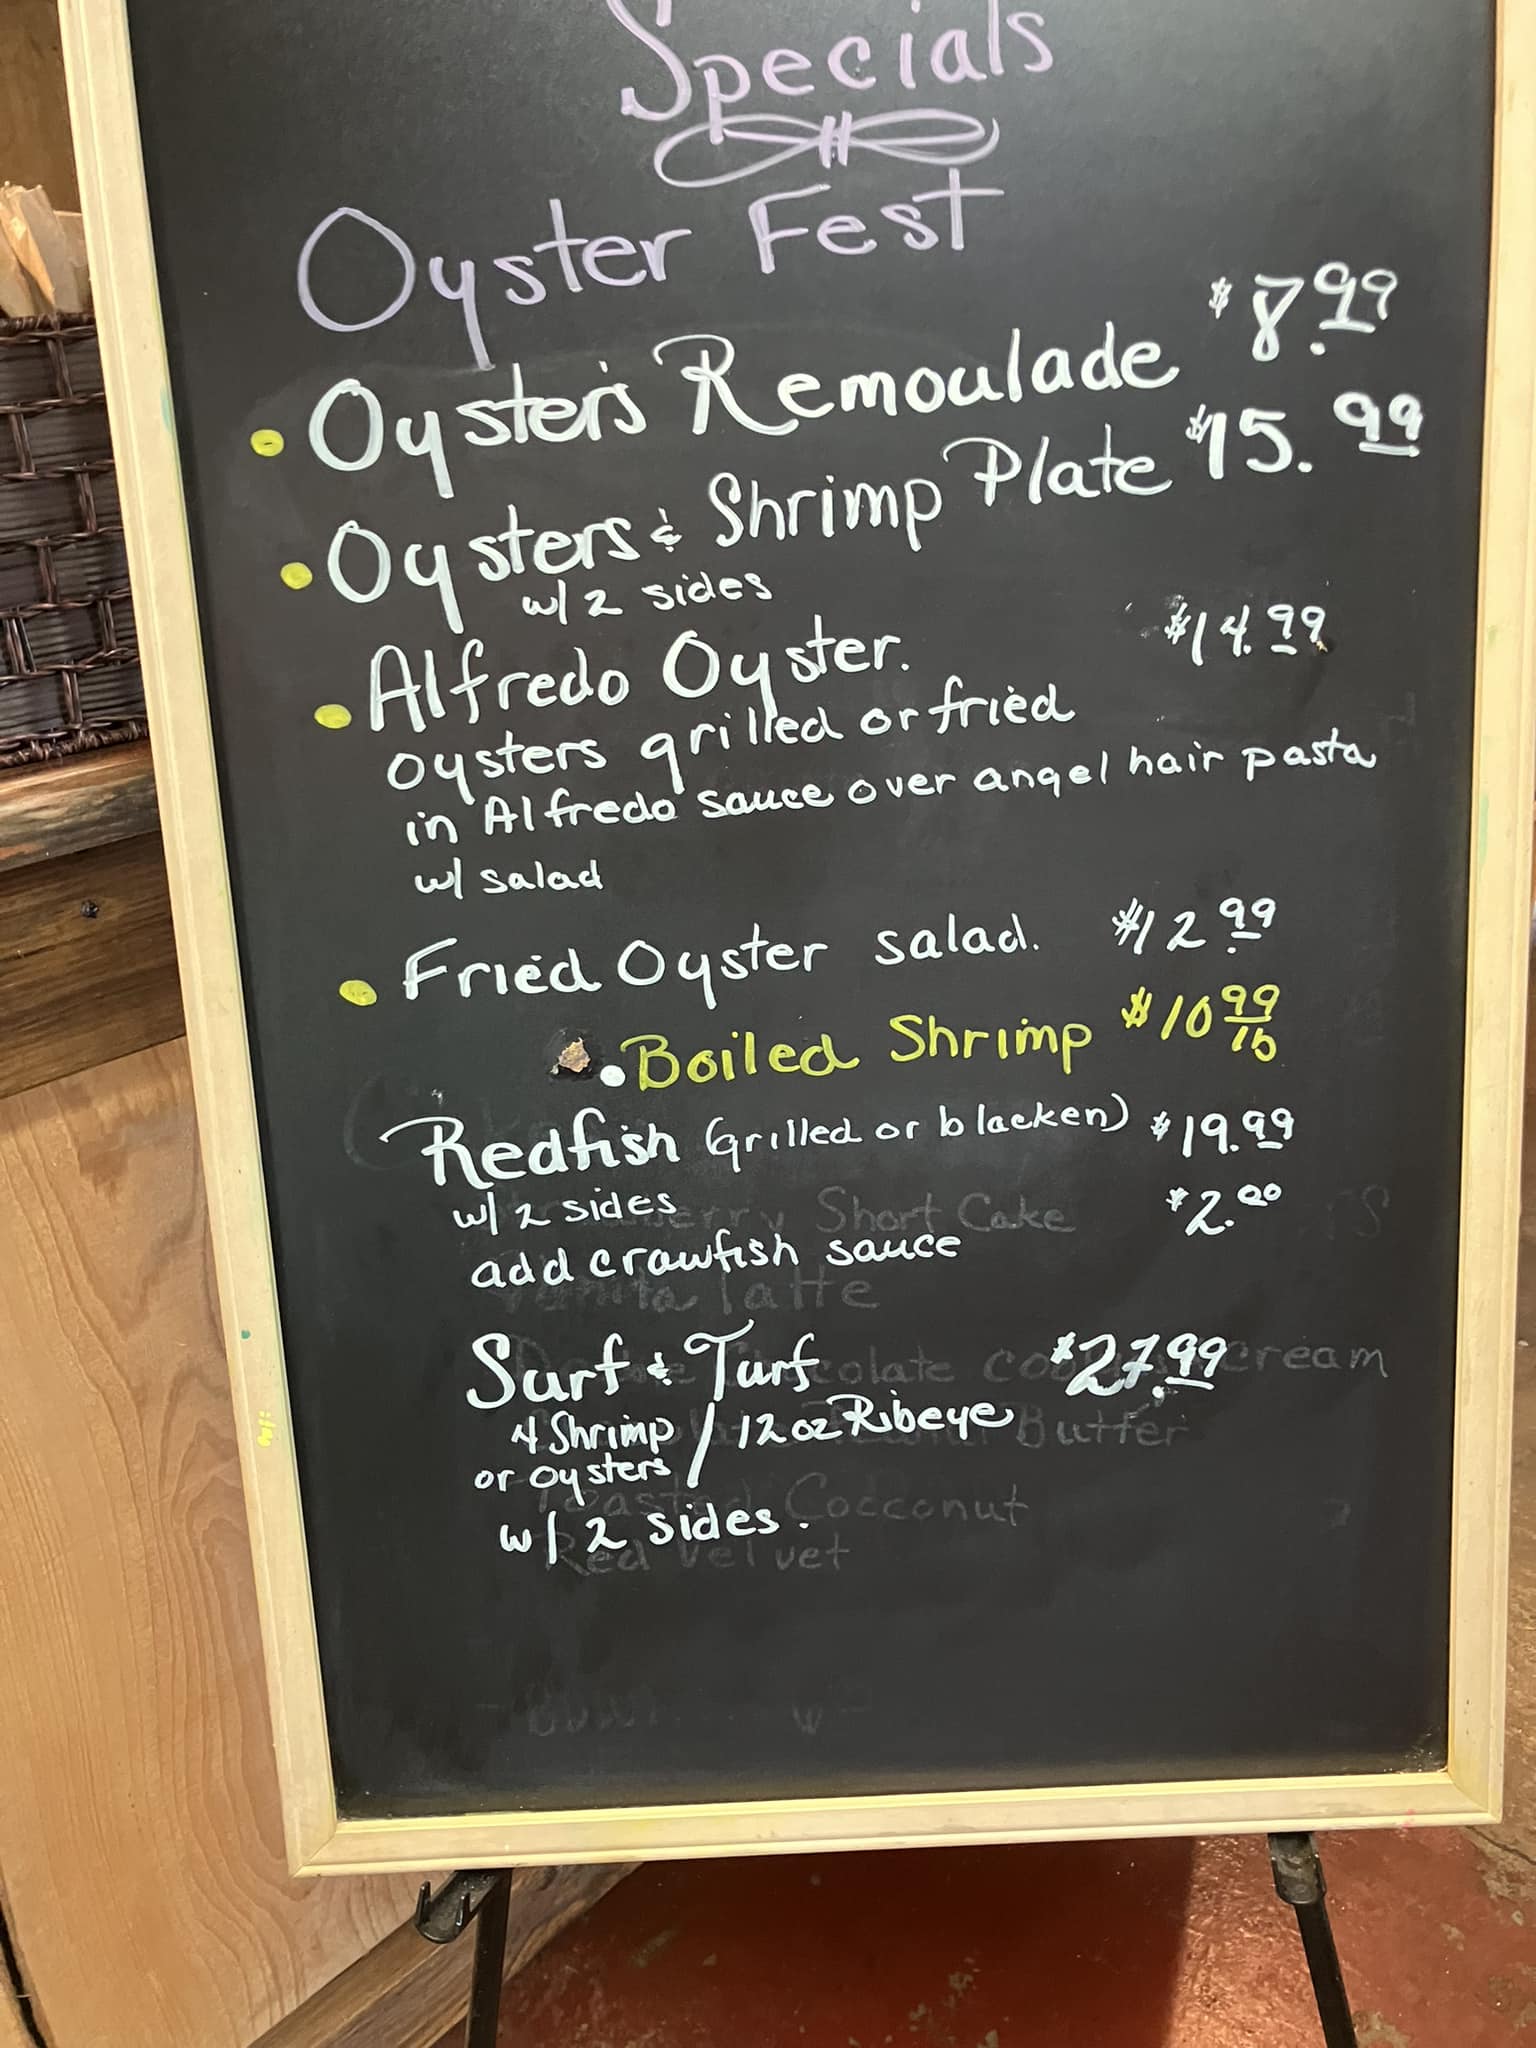 Specials
Oyster Fest
• Oysters Remoulade $8.99
• Oysters & Shrimp Plate $15.99
w/ 2 sides
• Alfredo Oyster. $14.99
oysters grilled or fried
in Alfredo sauce over angel hair pasta
w/ salad
• Fried Oyster salad. $12.99
• Boiled Shrimp $10.99/lb
Redfish (grilled or blacken) $19.99
w/ 2 sides
Short Cake
add crawfish sauce $2.00
Vanilla latte
Surf & Turf $27.99
Chocolate cream
4 Shrimp / 12oz Ribeye
Butter
or oysters
Toasted Cocconut
w/ 2 sides.
Red Velvet